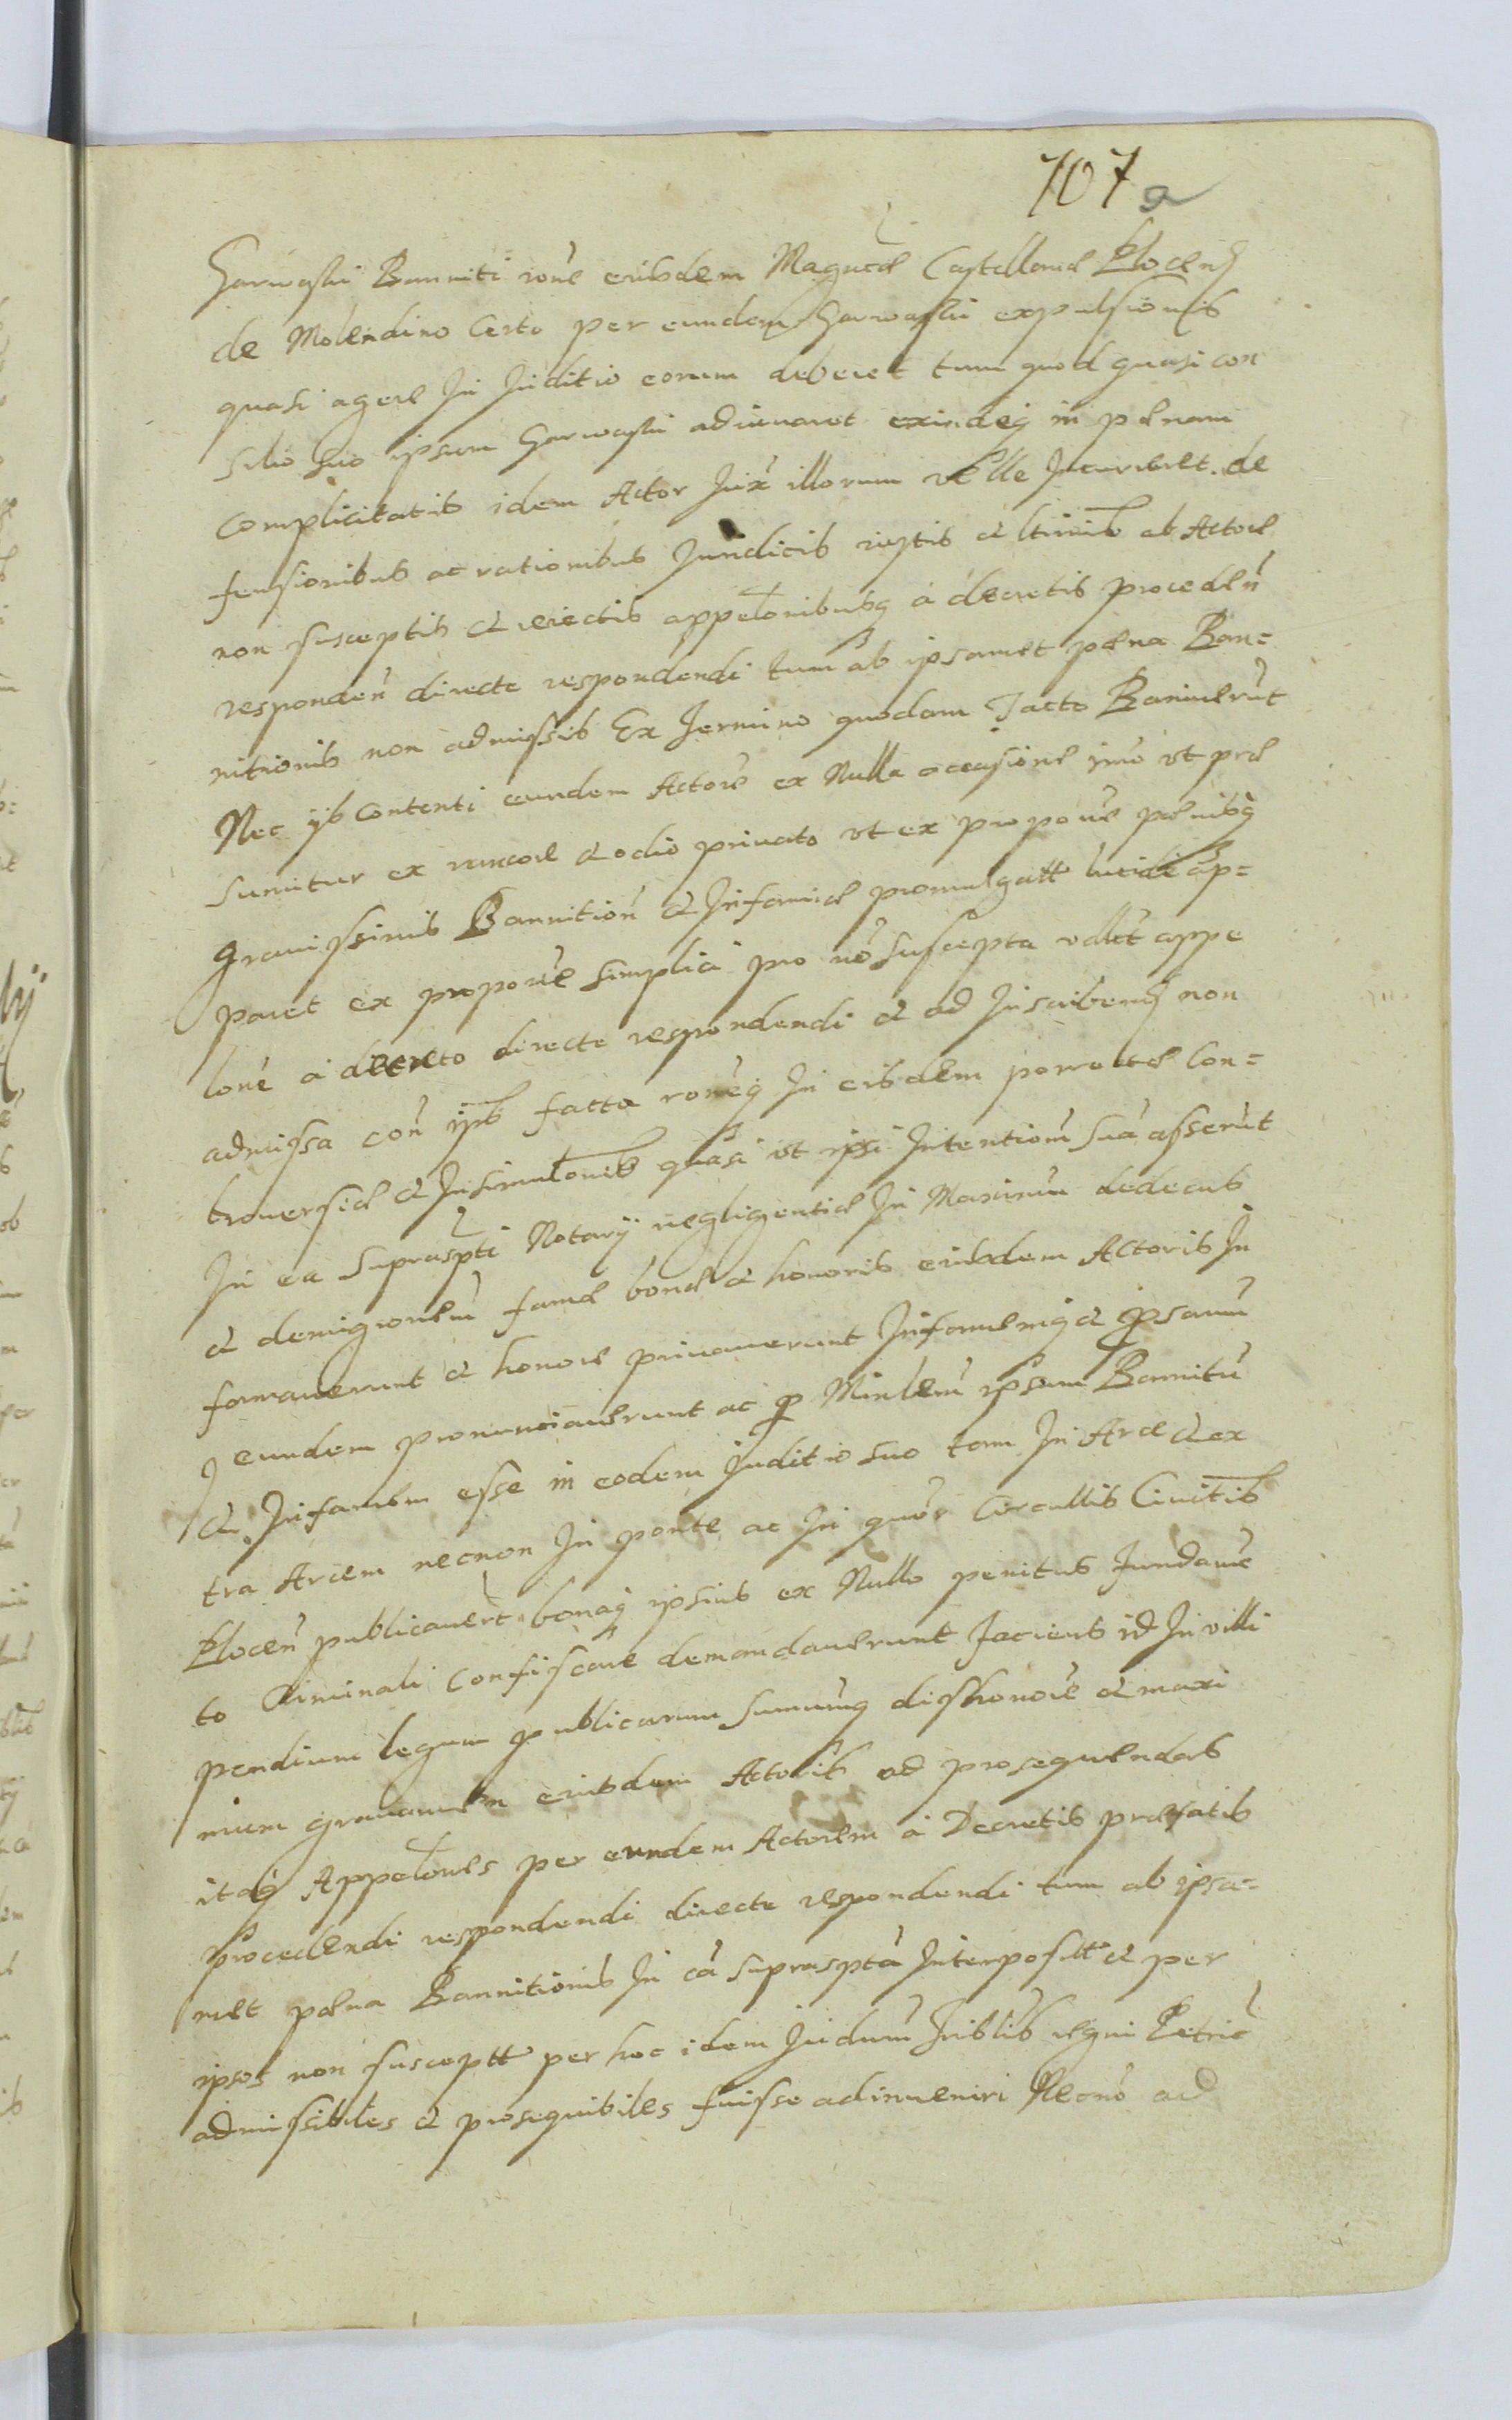 107 a
Garwaski Banniti rone eiusdem Magncae Castellanae Plocens
de Molendino Certo per eundem Garwaski expulsionis
quasi agere In Juditio eorum deberet tum quod quasi con
silio suo ipsum Garwaski adiuvaret exindeq in paenam
complicitatis idem Actor Jux illorum velle Incurreret. de
fensionibus ac rationibus Juridicis iustis et ltimis ab Actore
non susceptis et reiectis appellonibusq a decretis proceden
responden directe respondendi tum ab ipsamet paena Ban=
nitionis non admissis Ex Termino quodam Tacto Baniverut
Nec ijs Contenti eundem Actore ex Nulla occasione imo ut prae
sumitur ex rancore et odio privato ut ex propone paenisq
gravissimis Bannition et Infamiae promulgatt lucide ap=
paret ex propone simplici pro no suscepta vallet appe
lone a decreto directe respondendi et ad Inscribend non
admissa con ijs facta roneq In eisdem porrectae Con=
troversiae et Insimulonis quasi ut ipsi Intention sua asserut
In ea suprascpti Notarij negligentiae In Maximu dedecus
et denigronem famae bonae et honoris eiusdem Actoris In
famaverunt et honore privaverunt Infamemq et ipsamu
eundem pronunciaverunt ac p Minlem ipsum Bannitu
et Infamem esse in eodem Juditio suo tam In Arce et ex
tra Arcem necnon In ponte ac In quor Circullis Civitis
Plocen publicavert bonaq ipsius ex Nullo penitus fundame
to Criminali Confiscare demandaverunt faciens id In villi
pendium legum publicarum sumumq dishonore et maxi
mum gravamen eiusdem Actoris ad prosequendas
itaq Appellones per eundem Actorem a Decretis praefatis
procedendi respondendi directe respondendi tum ab ipsa=
met paena Bannitionis In ca suprascpta Interposittt et per
ipsos non susceptt per hoc idem Judum Triblis regni Petric
admissibiles et prosequibiles fuisse adinveniri Necno ad